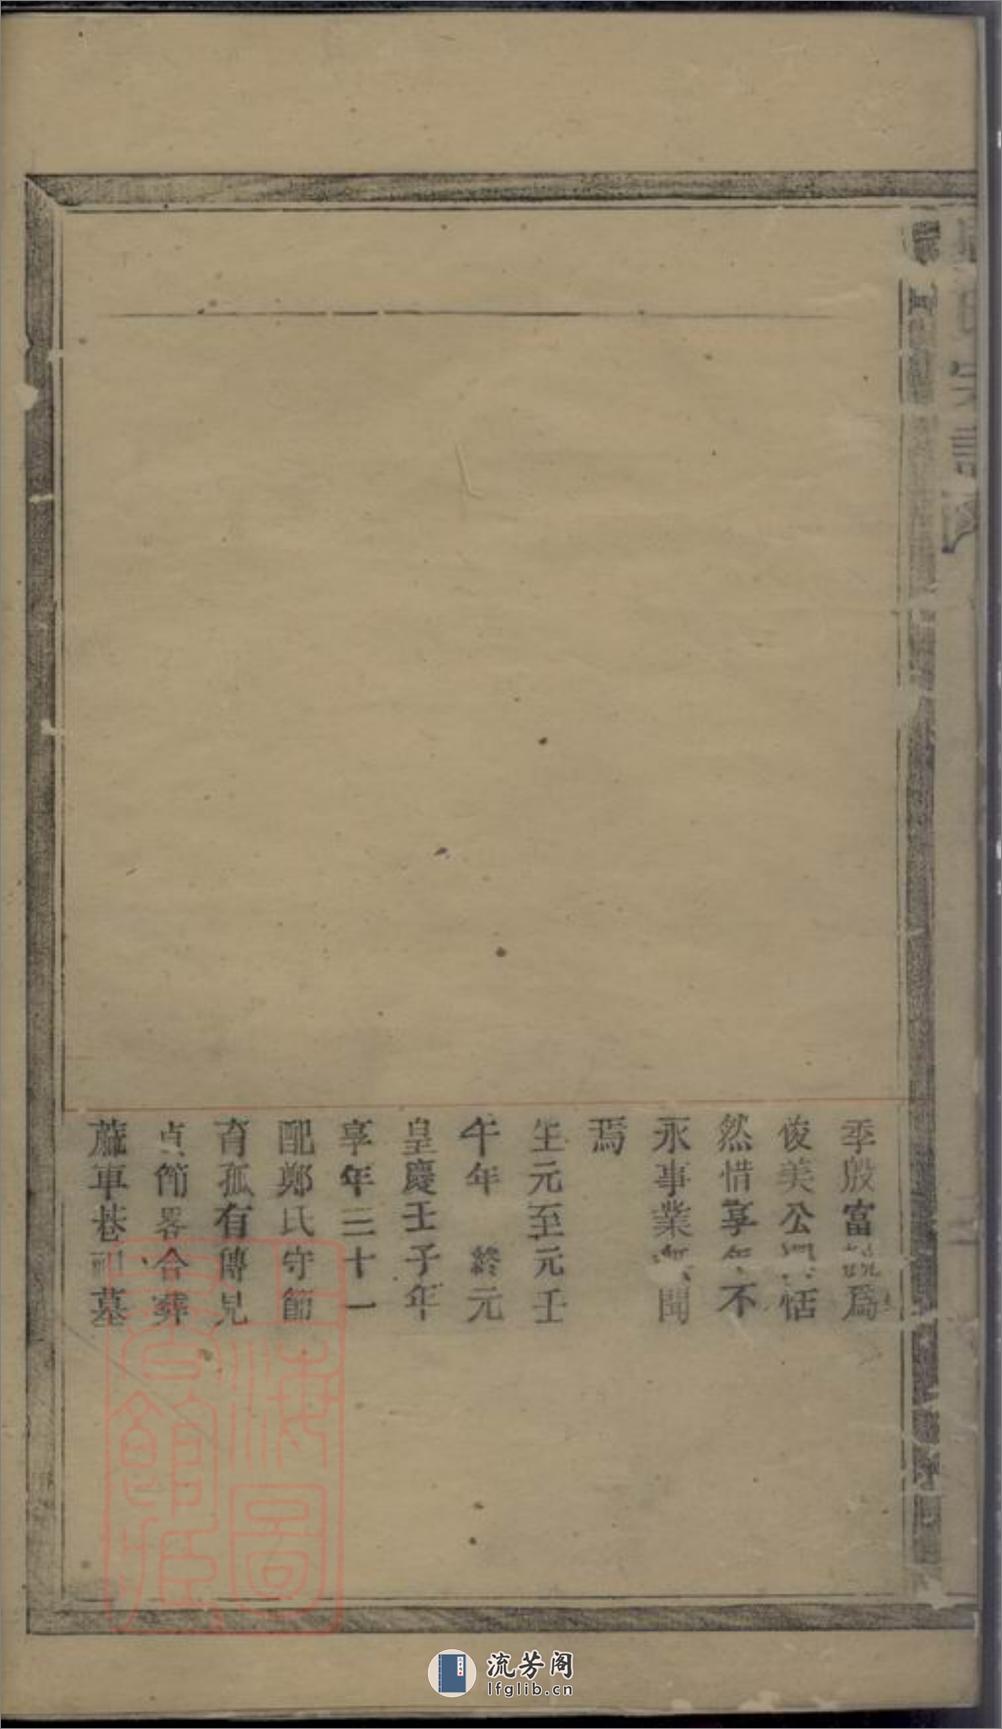 季殷富競為
俊美公獨恬
然惜享年不
永事業無聞
焉
生元至元壬
午年 終元
皇慶壬子年
享年三十一
配鄭氏守節
育孤有傳見
貞節畧合葬
蘼車巷祖墓
氏宗譜
上海圖
書館藏
流芳阁
lfglib.cn